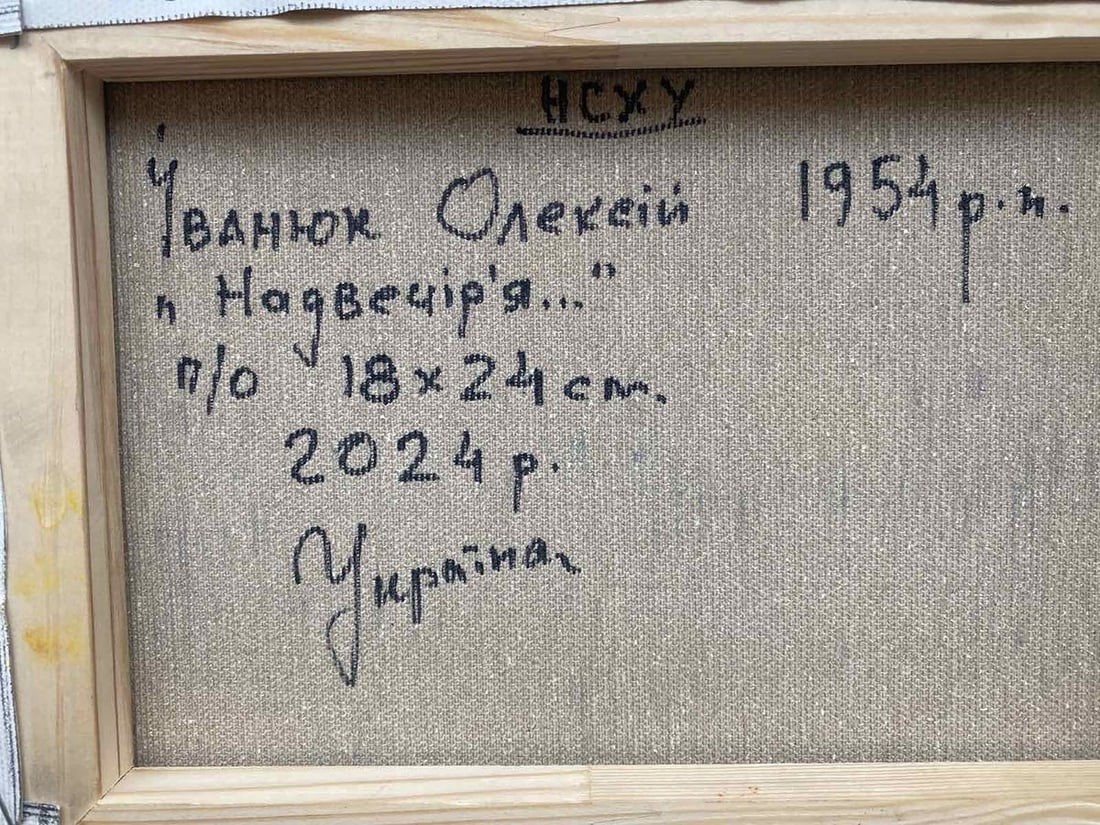 НСХУ
Іванюк Олексій 1954 р.н.
„Надвечір'я..."
п/о 18х24 см.
2024 р.
Україна